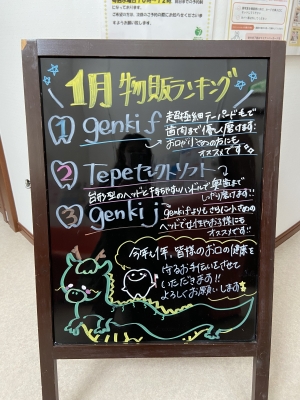 1月 物販ランキング
1 genki f
超極細テーパード毛で
歯肉まで優しく磨けます!
お口が小さめの方にも
オススメです
2 Tepeセレクトソフト
台形型のヘッドと持ちやすいハンドルで奥歯まで
しっかり磨けます!!
3 genki j
genki fよりもさらに小さめの
ヘッドで女性やお子様にも
オススメです!
今年も1年、皆様のお口の健康を
守るお手伝いをさせて
いただきます!!
よろしくお願いします